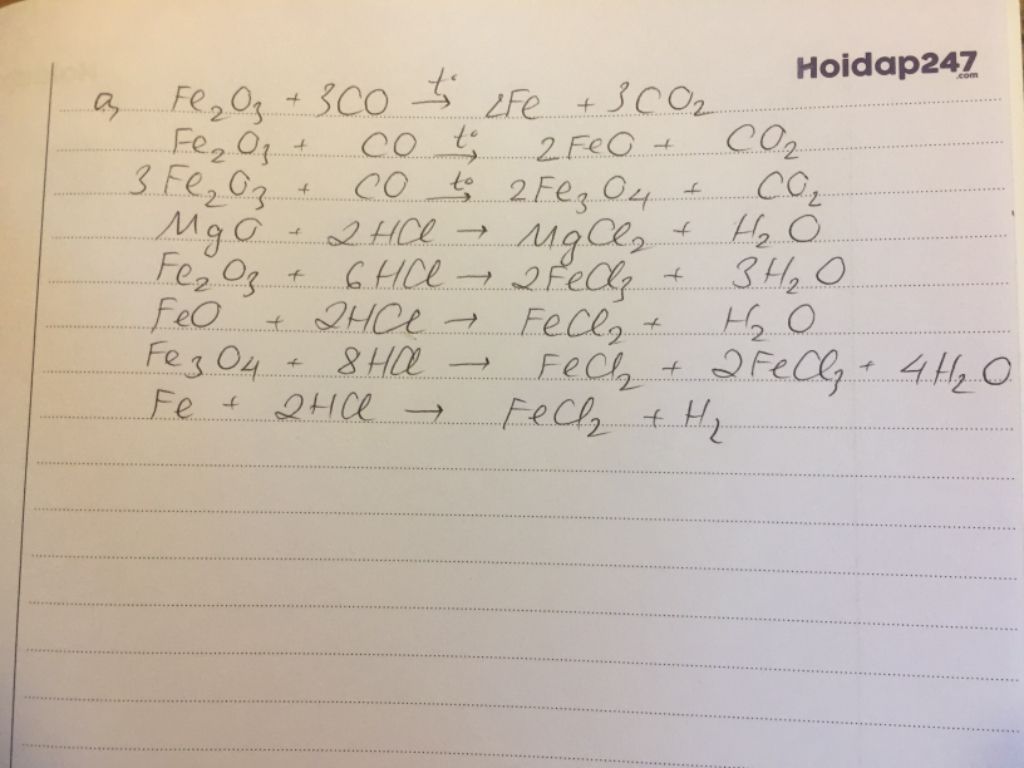 Hoidap247
.com
a, Fe₂O₃ + 3CO →t° 2Fe + 3CO₂
Fe₂O₃ + CO →t° 2FeO + CO₂
3Fe₂O₃ + CO →t° 2Fe₃O₄ + CO₂
MgO + 2HCl → MgCl₂ + H₂O
Fe₂O₃ + 6HCl → 2FeCl₃ + 3H₂O
FeO + 2HCl → FeCl₂ + H₂O
Fe₃O₄ + 8HCl → FeCl₂ + 2FeCl₃ + 4H₂O
Fe + 2HCl → FeCl₂ + H₂